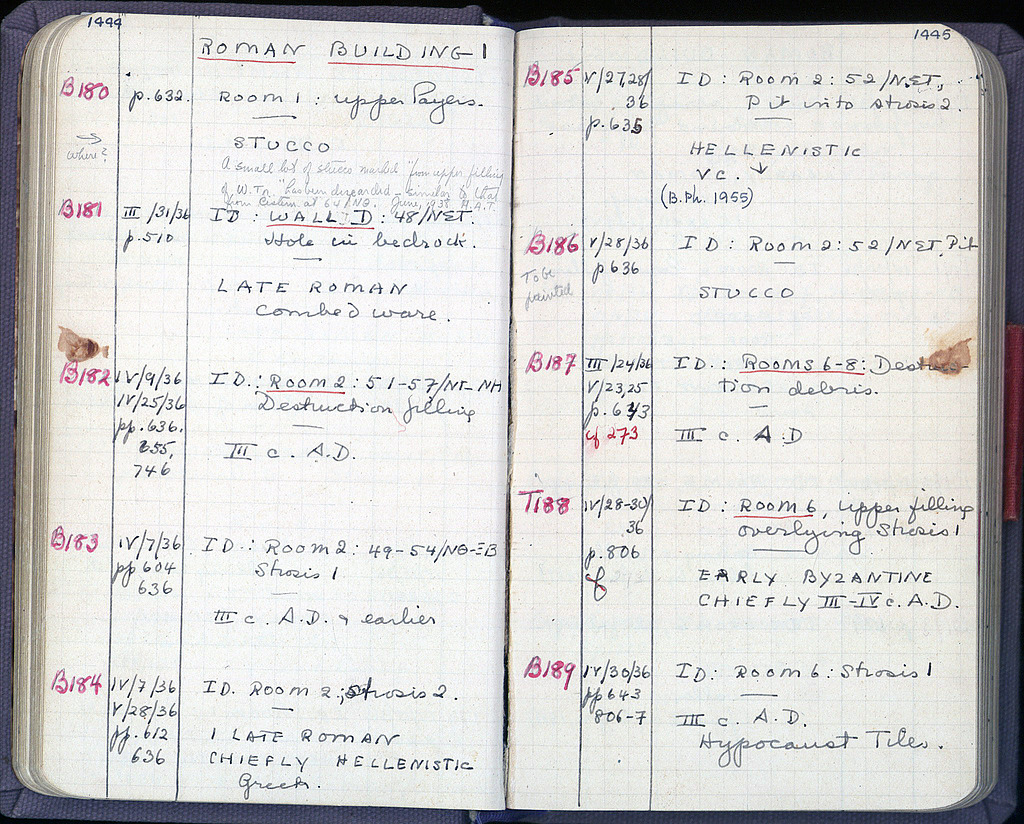 1444
ROMAN BUILDING 1
B180 p.632. ROOM 1 : upper Layers.
→ where?
STUCCO
A small lot of stucco marked "from upper filling
of W. Tr." has been discarded - similar to that
from Cistern at 64/ΝΘ. June, 1938 H.A.T.
B181 III/31/36 ID : WALL D : 48/ΝΣΤ.
p.510 Hole in bedrock.
LATE ROMAN
combed ware.
B182 IV/9/36 ID. : ROOM 2 : 51-57/ΝΓ-ΝΗ
IV/25/36 Destruction filling
pp.636.
655,
746
III c. A.D.
B183 IV/7/36 ID : ROOM 2 : 49-54/ΝΘ-ΞΒ
pp 604 Strosis 1
636
III c. A.D. & earlier
B184 IV/7/36 ID. ROOM 2; Strosis 2.
V/28/36
pp.612 1 LATE ROMAN
636 CHIEFLY HELLENISTIC
Greek.
1445
B185 V/27,28/ ID : ROOM 2 : 52/ΝΣΤ,
36 Pit into strosis 2.
p.635
HELLENISTIC
V c. ↓
(B.Ph. 1955)
B186 V/28/36 ID : ROOM 2 : 52/ΝΣΤ, Pit
p 636
To be
painted
STUCCO
B187 III/24/36 ID. : ROOMS 6-8 : Destruc-
V/23,25 tion debris.
p.643
cf 273 III c. A.D
T188 IV/28-30/ ID : ROOM 6, upper filling
36 overlying Strosis 1
p.806
cf
EARLY BYZANTINE
CHIEFLY III-IV c. A.D.
B189 IV/30/36 ID : ROOM 6 : Strosis 1
pp 643
806-7 III c. A.D.
Hypocaust Tiles.